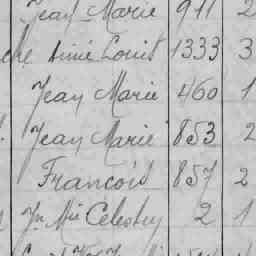 Jean-Marie 911 2
che Aimé Louis 1333 3
Jean Marie 460 1
Jean Marie 853 2
François 857 2
Jn Mie 2 1